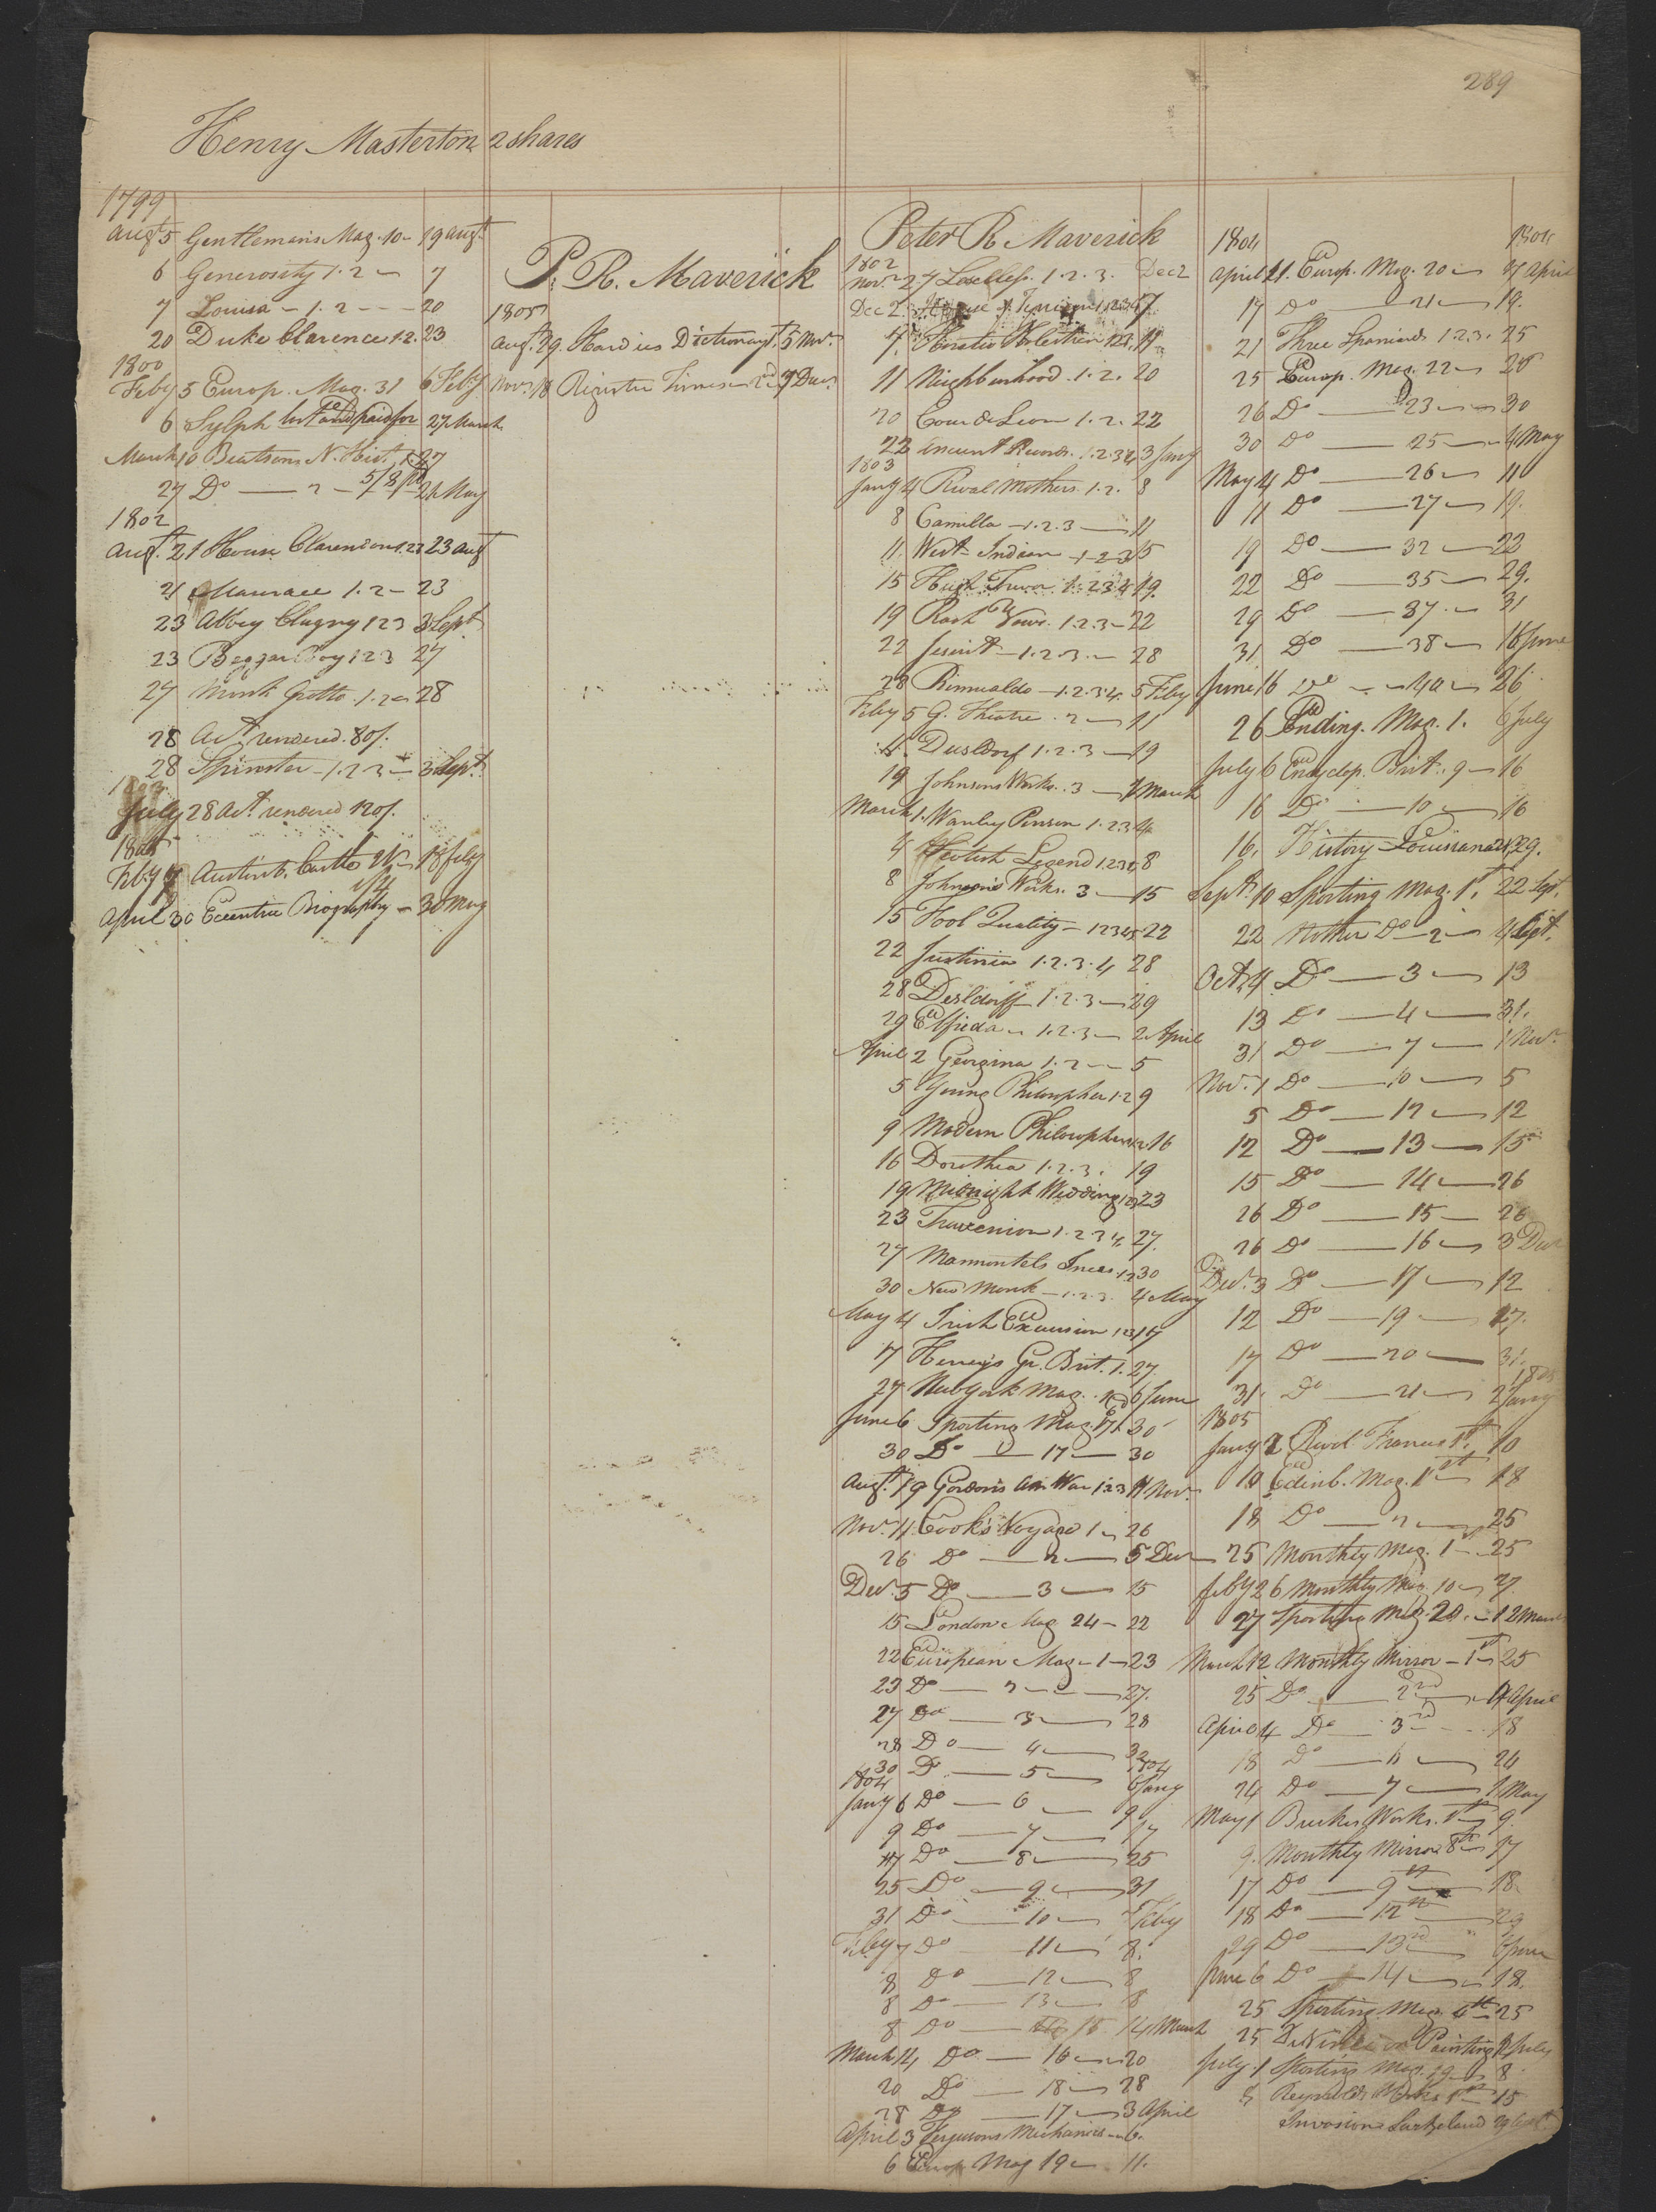 289
Henry Masterton 2 shares
1799
Augt 5 Gentlemans Mag. 10 – 19 Augt
6 Generosity 1.2 – 7
7 Louisa – 1.2 – – 20
20 Duke Clarence 1.2. 23
1800
Feby 5 Europ. Mag. 31 6 Feby
6 Sylph lost and paid for 27 March
March 10 Beatsons N. Hist. 1. 27
27 Do — 2 – 5/8 pd 21 May
1802
Augt. 21 House Clarendon 1.2 23 Augt
21 1.2 – 23
23 Abbey Clugny 1 2 3 3 Sept
23 Beggar Boy 1 2 3 27
27 Monk Grotto. 1.2 – 28
28 Act. rendered 80/.
28 Spinster – 1.2.3 – 3 Sept.
July 28 Act. rendered 120/.
Feby 7 Austinb. Castle 18 Feby
April 30 Eccentric Biography – 30 May
P. R. Maverick
1805
Aug. 29. Dictionary 1. 5 Nov.
Nov. 18 Register Times – 2nd 9 Decr.
Peter R Maverick
1802
Nov. 27 1.2.3. Dec 2
Dec 2. 7
7. 11
11 Neighbourhood. 1.2. 20
20 Coeur de Leon 1.2. 22
22 Ancient Records. 1.2.3.4 3 Jany
1803
Jany 4 Rival Mothers. 1.2. 8
8 Camilla – 1.2.3 — 11
11. West Indian – 1–2–3 15
15 Hugh Trevor 1.2.3.4 19.
19 Rash Vows. 1.2.3 – 22
22 Jesuit – 1.2.3. – 28
28 Rimualdo – 1.2.3 4. 5 Feby
Feby 5 G. Theatre. 2 — 11
11. Dusldorf 1.2.3 – 19
19 Johnsons Works. 3 – 1 March
March 1. Wanley Penson 1.2.3 4
4 Scotish Legend 1 2 3 4 8
8 Johnson's Works. 3 — 15
15 Fool Quality – 1 2 3 4 5 22
22 Justinia 1.2.3.4 28
28 Desldorff – 1.2.3 — 29
29 Elfrida – 1.2.3 – 2 April
April 2 Georgina 1.2 — 5
5 Young Philosopher 1.2 9
9 Modern Philosophers 1.2 16
16 Dorothea 1.2.3. 19
19 Midnight Wedding 1.2.3 23
23 Travenion 1.2.3 4. 27.
27 Marmontels Incas 1.2 30
30 New Monk – 1.2.3. 4 May
May 4 Irish Excursion 1 2 3 17
17 Henrys Gr. Brit. 1. 27.
27 Newyork Mag. 6 June
June 6 Sporting Mag. 17. 30
30 Do — 17 — 30
Augt. 19 Gordon's Am War 1 2 3 11 Nov.
Nov. 11. Cook's Voyage 1 – 26
26 Do — 2 — 5 Decr
Decr. 5 Do — 3 — 15
15 London Mag 24 – 22
22 European Mag – 1 – 23
23 Do — 2 — 27.
27 Do — 3 — 28
28 Do — 4 — 30
30 Do — 5 — 1804 6 Jany
1804
Jany 6 Do — 6 — 9
9 Do — 7 — 17
17 Do — 8 — 25
25 Do — 9 — 31
31 Do — 10 — 7 Feby
Feby 7 Do — 11 — 8.
8 Do — 12 — 8
8 Do — 13 — 8
8 Do — 15 14 March
March 14 Do — 16 — 20
20 Do — 18 — 28
28 Do — 17 — 3 April
April 3 Fergusons Mechanics – 6.
6 Europ Mag 19 – 11.
1804 1804
April 11. Europ. Mag. 20 – 17 April
17 Do — 21 — 19.
21 Three Spaniards 1.2.3. 25
25 Europ. Mag. 22 – 26
26 Do — 23 — 30
30 Do — 25 — 4 May
May 4 Do — 26 — 11
11 Do — 27 — 19.
19 Do — 32 — 22
22 Do — 35 — 29.
29 Do — 37. – 31
31 Do — 38 – 16 June
June 16 Do — 40 – 26
26 Mag. 1. 6 July
July 6 Encyclop. Brit. 9 — 16
16 Do — 10 — 16
16. History Louisiana 29.
Septr. 10 Sporting Mag. 1st. 22 Sept.
22 Nother Do — 2 — 4 Oct.
Octr 4 Do — 3 — 13
13 Do — 4 — 31.
31 Do — 7 — 1 Nov.
Nov. 1 Do — 10 — 5
5 Do — 12 — 12
12 Do — 13 — 15
15 Do — 14 — 26
26 Do — 15 — 26
26 Do — 16 — 3 Decr
Decr. 3 Do — 17 — 12
12 Do — 19 — 17.
17 Do — 20 — 31.
31. Do — 21 — 1805 2 Jany
1805
Jany 2 Rival Frances 1st. 10
10 Edinb. Mag. 1st 18
18 Do — 2 — 25
25 Monthly Mag. 1 – 25
Feby 26 Monthly Mag. 10 – 27.
27 Sporting Mag. 20. – 12 March
March 12 Monthly Mirror – 1st 25
25 Do — 2nd — 4 April
April 4 Do — 3rd — 18
18 Do — 6 — 24
24 Do — 7 — 1 May
May 1 Burkes Works. 1st 9.
9. Monthly Mirror 8th – 17
17 Do — 9th — 18
18 Do — 12th — 29
29 Do — 13rd 6 June
June 6 Do — 14 — 18.
25 Sporting Mag. 4th – 25
25 Painting 1 July
July. 1 Sporting Mag. 19 – 8
8 Reynolds Works 1st 15
Invasion Switzeland